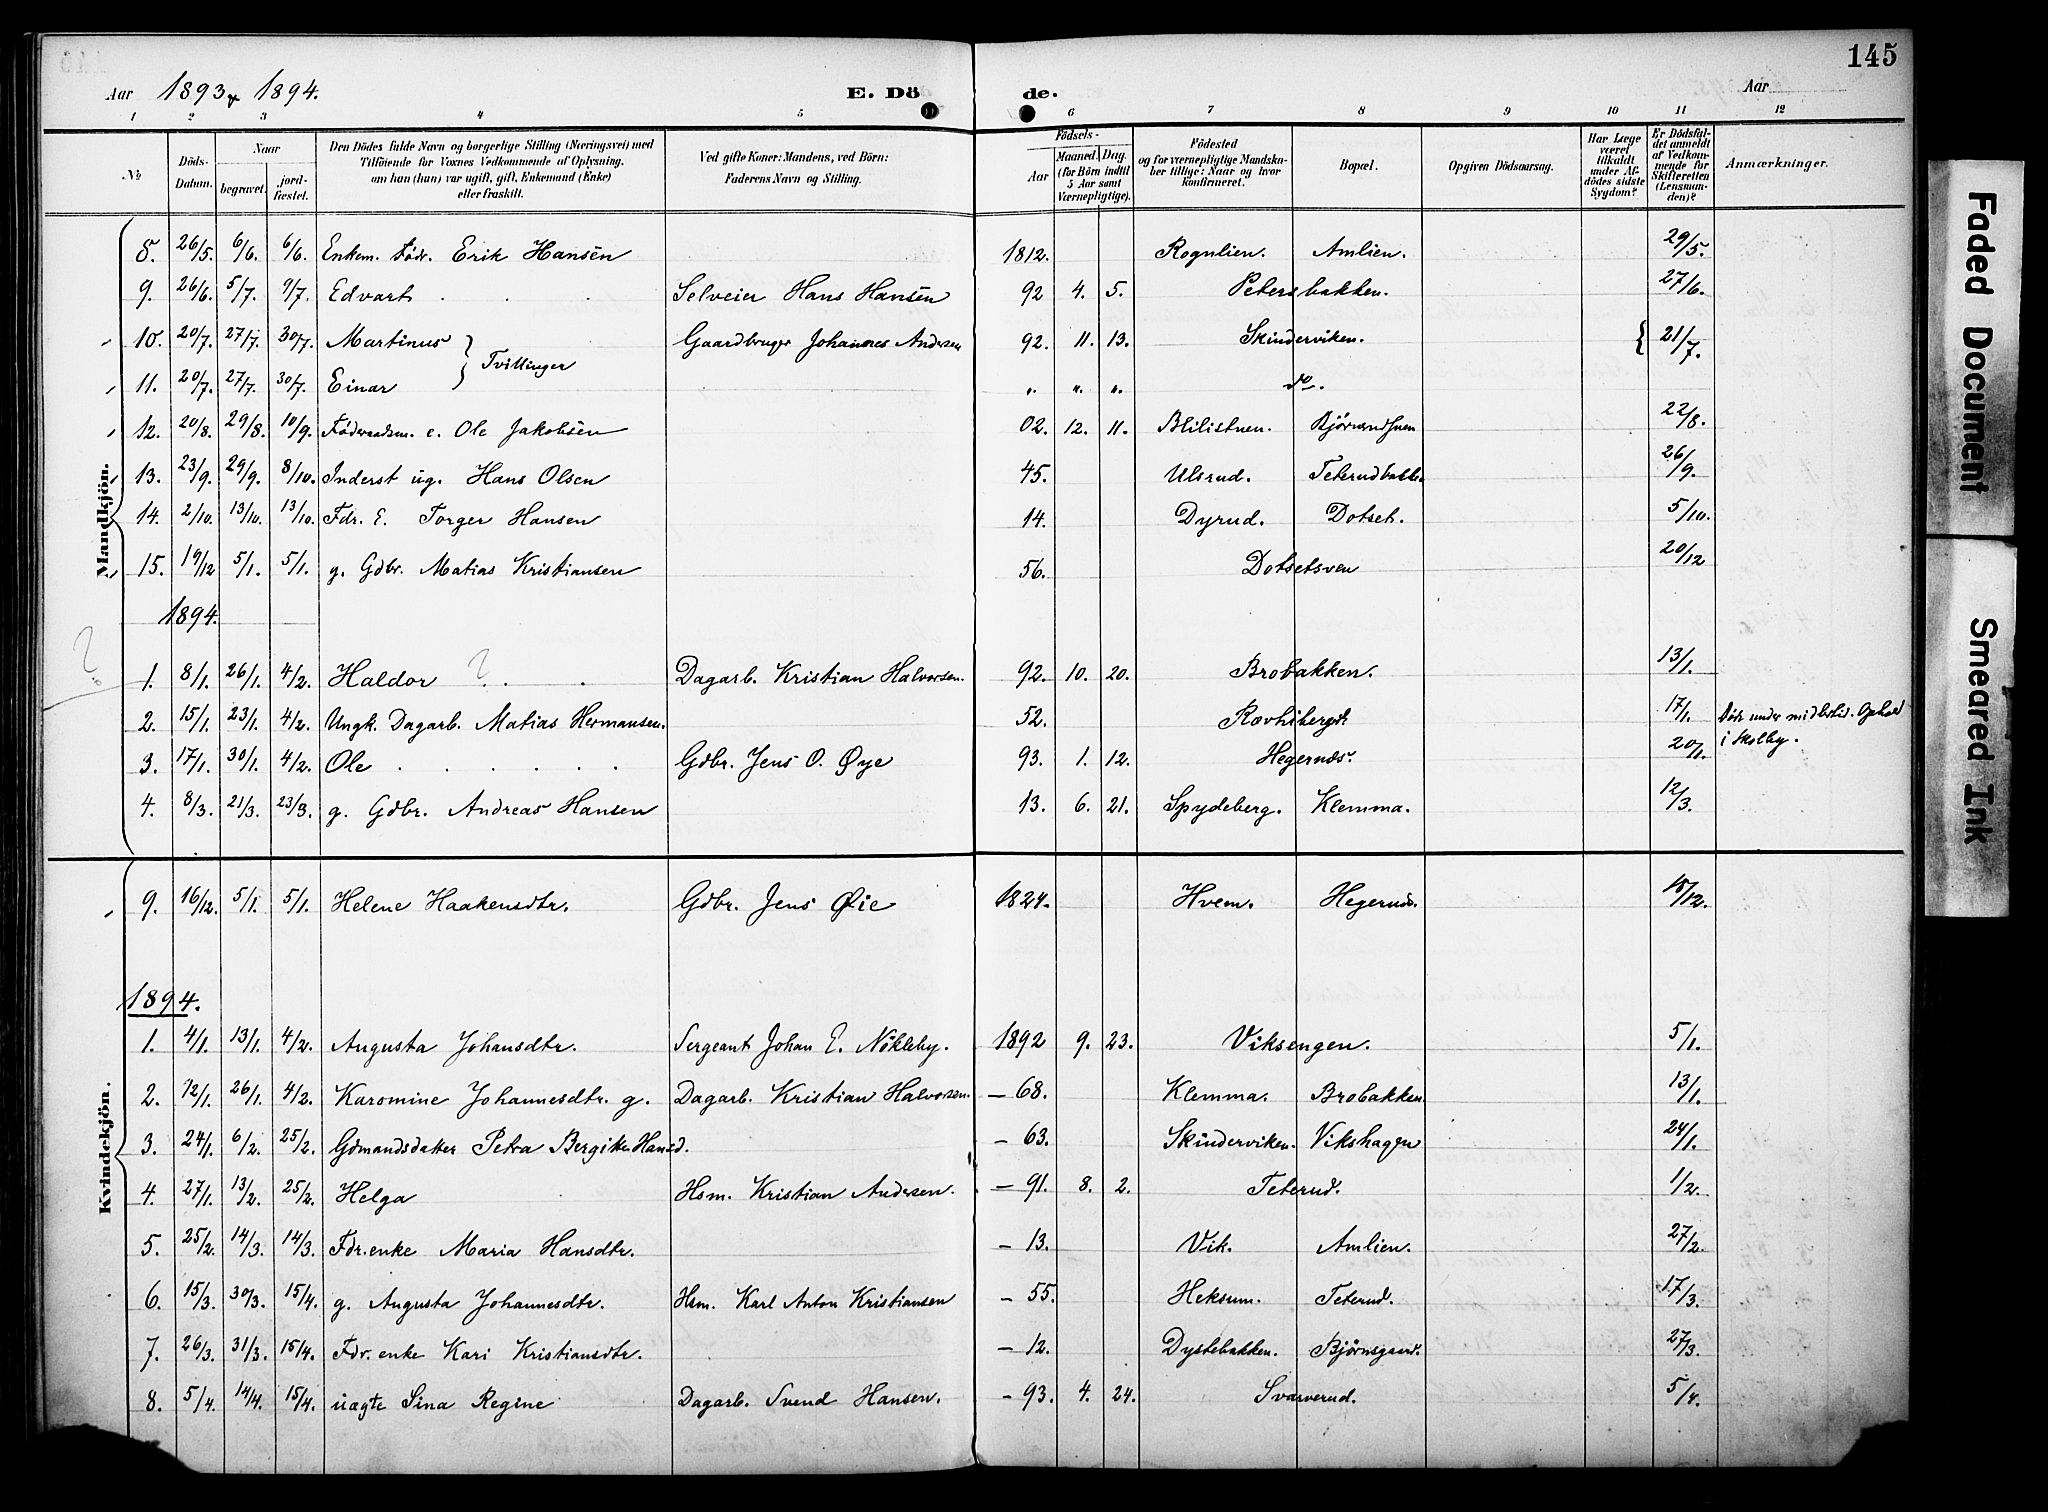 145
Aar 1893 & 1894.
E. Dö de.
Aar
1 2 3 4 5 6 7 8 9 10 11 12
No
Döds-Datum.
Naar
begravet.
jord-fæstet.
Den Dödes fulde Navn og borgerlige Stilling (Næringsvei) med
Tilföiende for Voxnes Vedkommende af Oplysning,
om han (hun) var ugift, gift, Enkemand (Enke)
eller fraskilt.
Ved gifte Koner: Mandens, ved Börn:
Faderens Navn og Stilling.
Födsels-
Aar
Maaned. Dag.
(for Börn indtil
5 Aar samt
Værnepligtige).
Födested
og for værnepligtige Mandska-
ber tillige: Naar og hvor
konfirmeret.
Bopæl.
Opgiven Dödsaarsag.
Har Læge
været
tilkaldt
under Af-
dödes sidste
Sygdom?
Er Dödsfal-
det anmeldt
af Vedkom-
mende for
Skifteretten
(Lensman-
den)?
Anmærkninger.
Mandkjön.
8. 26/5. 6/6. 6/6. Enkem. Födr. Erik Hansen 1812. Rognlien. Amlien. 29/5.
9. 26/6. 5/7. 9/7. Edvart . . . Selveier Hans Hansen 92 4. 5. Petersbakken. 27/6.
10. 20/7. 27/7. 30/7. Martinus } Tvillinger Gaardbruger Johannes Andersen 92. 11. 13. Skinderviken. { 21/7.
11. 20/7. 27/7. 30/7. Einar " " " do.
12. 20/8. 29/8. 10/9. Föderaadsm. e. Ole Jakobsen 02. 12. 11. 22/8.
13. 23/9. 29/9. 8/10. Inderst ug. Hans Olsen 45. Ulsrud. Teterudbakke. 26/9.
14. 2/10. 13/10. 13/10. Fdr. E. Torger Hansen 14. Dyrud. Dotset. 5/10.
15. 19/12 5/1. 5/1. g. Gdbr. Matias Kristiansen 56. Dotsetsven 20/12
1894.
?
1. 8/1. 26/1. 4/2. Haldor ? . . Dagarb. Kristian Halvorsen. 92. 10. 20. Brobakken. 13/1.
2. 15/1. 23/1. 4/2. Ungk. Dagarb. Matias Hermansen. 52. 17/1. Död under midlertid. Ophold
i Skolby.
3. 17/1. 30/1. 4/2. Ole . . . . . Gdbr. Jens O. Øye 93. 1. 12. Hegernæs. 20/1.
4. 8/3. 21/3. 23/3. g. Gdbr. Andreas Hansen 13. 6. 21. Spydeberg. Klemma. 12/3.
Kvindekjön.
9. 16/12. 5/1. 5/1. Helene Haakensdtr. Gdbr. Jens Øie 1824. Hvem. Hegernæs. 18/12.
1894.
1. 4/1. 13/1. 4/2. Augusta Johansdtr. Sergeant Johan E. Nökleby. 1892 9. 23. Viksengen. 5/1.
2. 12/1. 26/1. 4/2. Karomine Johannesdtr. g. Dagarb. Kristian Halvorsen. – 68. Klemma. Brobakken. 13/1.
3. 24/1. 6/2. 25/2. Gdmandsdatter Petra Bergitte Hansd. – 63. Skinderviken. Vikshagen 24/1.
4. 27/1. 13/2. 25/2. Helga Hsm. Kristian Andersen. – 91. 8. 2. Teterud. 1/2.
5. 25/2. 14/3. 14/3. Fdr.enke Maria Hansdtr. – 13. Vik. Amlien. 27/2.
6. 15/3. 30/3. 15/4. g. Augusta Johannesdtr. Hsm. Karl Anton Kristiansen – 55. Heksum. Teterud. 17/3.
7. 26/3. 31/3. 15/4. Fdr.enke Kari Kristiansdtr. – 12. Dystebakken. Björnsgaard. 27/3.
8. 5/4. 14/4. 15/4. uægte Sina Regine Dagarb. Svend Hansen. – 93. 4. 24. Svarverud. 5/4.
Faded Document
Smeared Ink